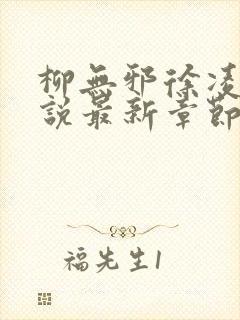 柳無邪徐凌
說最新章節
福先生1